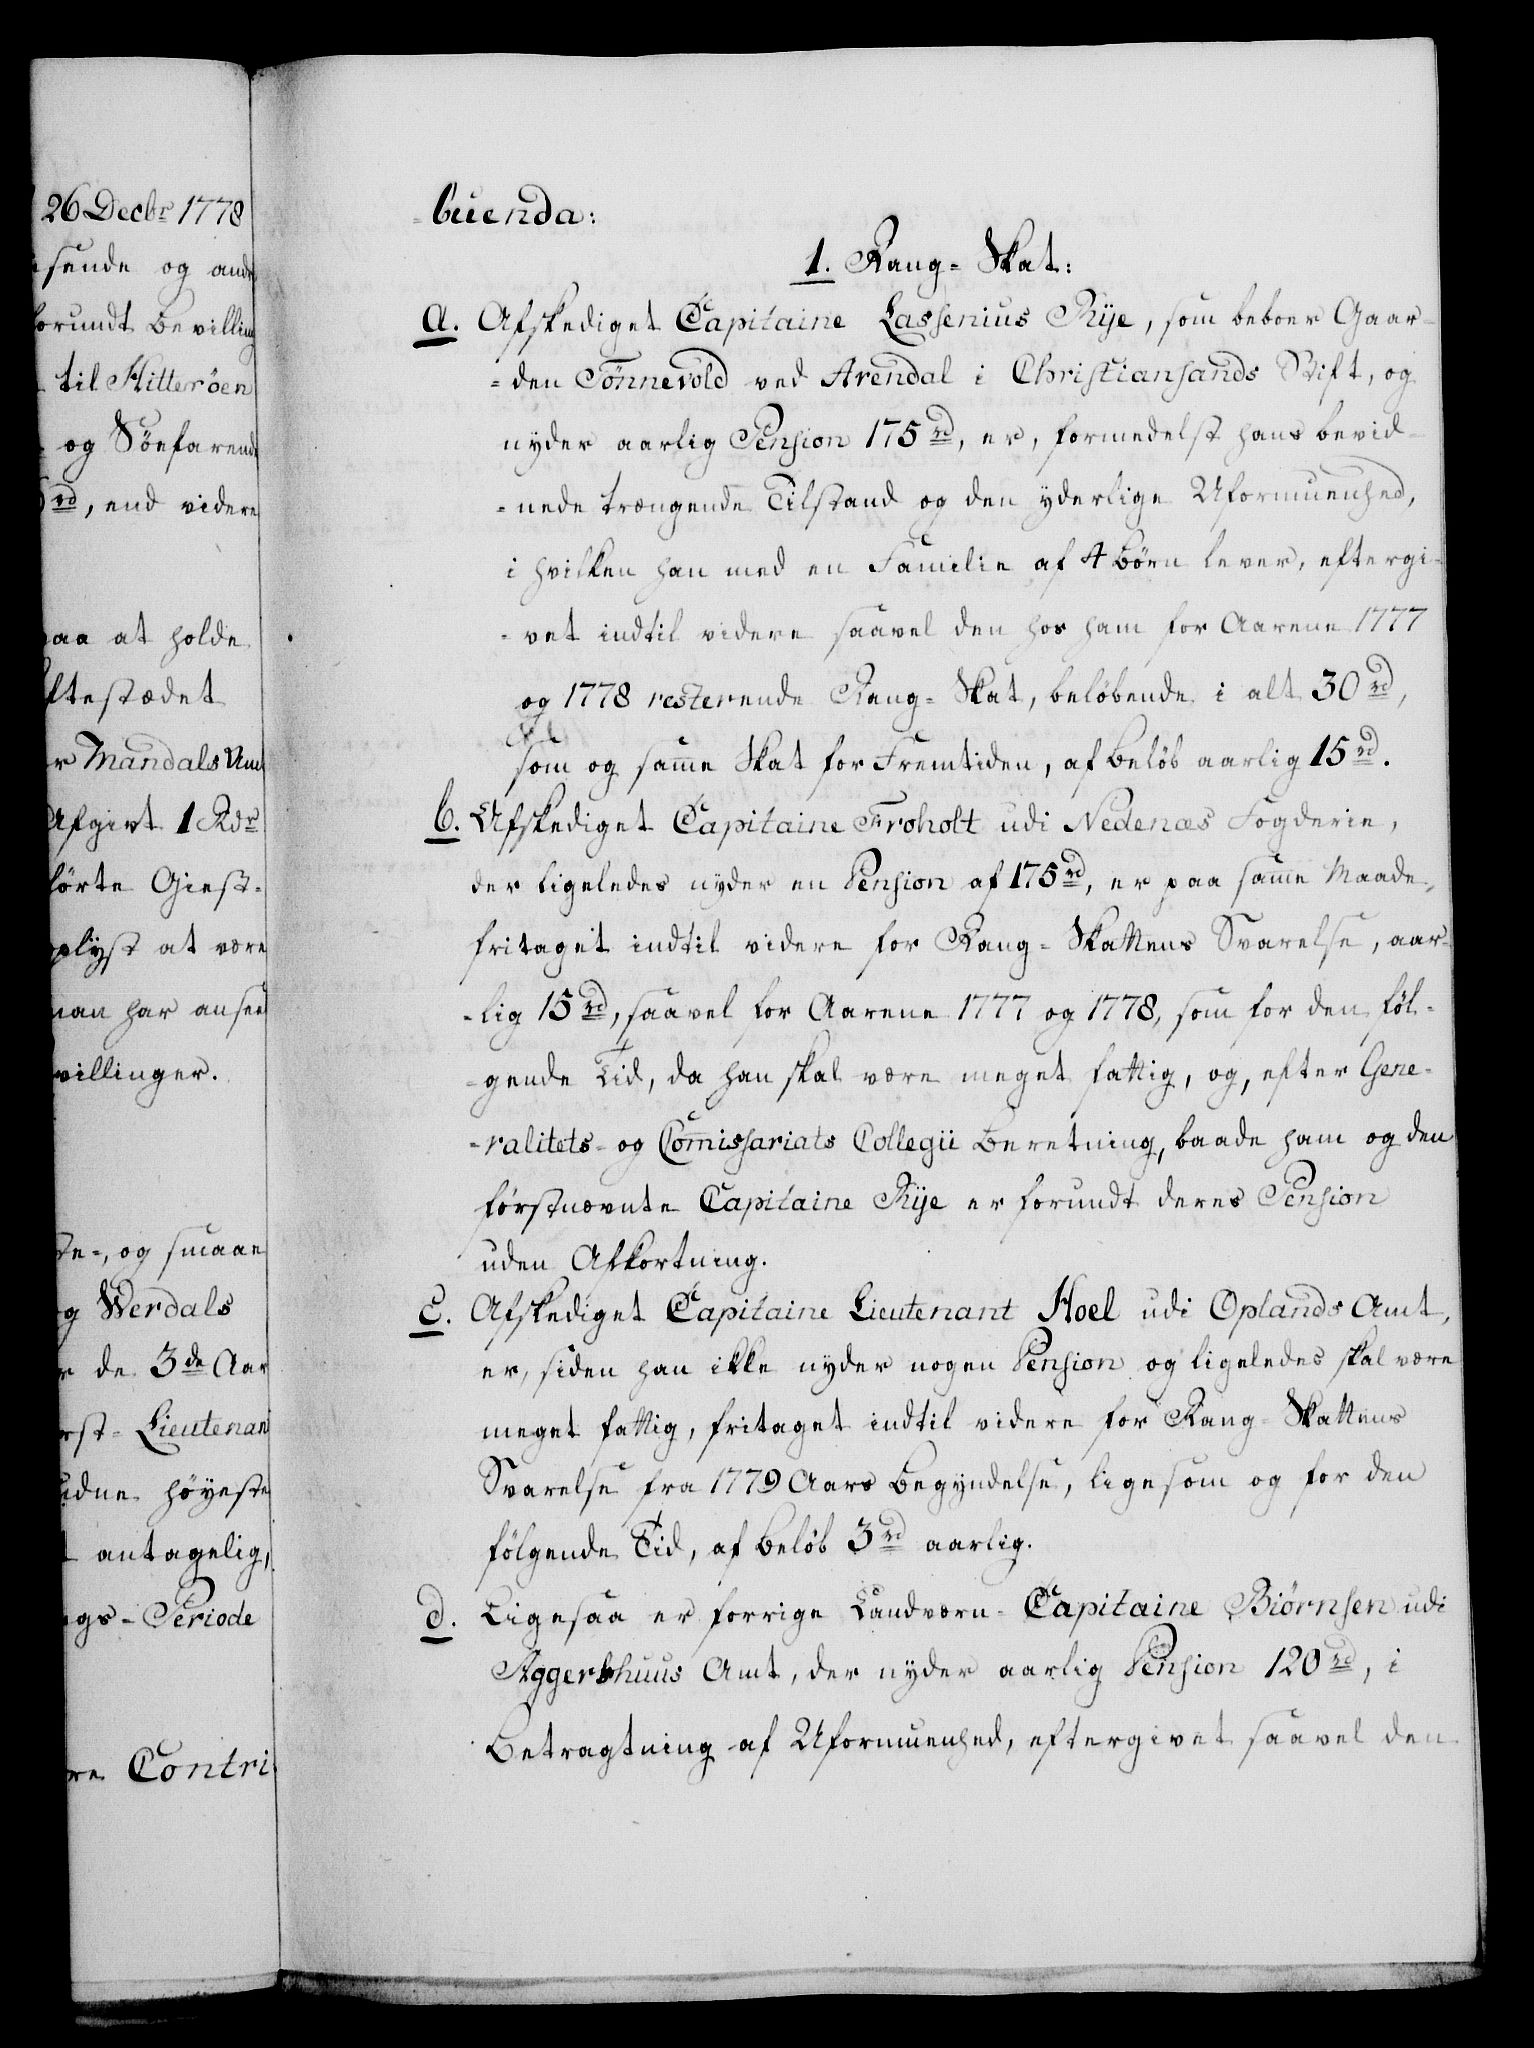 26 Decbr 1778
sende og andr
forundt Bevilling
til Hitterøen
og Søefarende
rd, end videre
paa at holde
ftestædet
r Mandals Amt
Afgivt 1 Rdr
førte Giest-
plyst at være
man har anseet
villinger.
de-, og smaae
og Werdals
r de 3de Aar
rst-Lieutenant
udne høyeste
t antagelig,
ngs-Periode
re Contri
-buenda:
1. Rang-Skat:
a. Afskediget Capitaine Lassenius Rije, som beboer Gaar-
-den Tönnevold ved Arendal i Christiansands Stift, og
nyder aarlig Pension 175 rd, er, formedelst hans bevid-
-nede trængende Tilstand og den yderlige Uformuenhed,
i hvilken han med en Familie af 4 Børn lever, eftergi-
-vet indtil videre saavel den hos ham for Aarene 1777
og 1778 resterende Rang-Skat, beløbende i alt 30 rd,
som og samme Skat for Fremtiden, af Beløb aarlig 15 rd.
b. Afskediget Capitaine Froholt udi Nedenæs Fogderie,
der ligeledes nyder en Pension af 175 rd, er paa samme Maade,
fritaget indtil videre for Rang-Skattens Svarelse, aar-
-lig 15 rd, saavel for Aarene 1777 og 1778, som for den føl-
-gende Tid, da han skal være meget fattig, og, efter Gene-
-ralitets- og Commissariats Collegii Beretning, baade ham og den
førstnævnte Capitaine Rije er forundt deres Pension
uden Afkortning.
c. Afskediget Capitaine Lieutenant Hoel udi Oplands Amt,
er, siden han ikke nyder nogen Pension og ligeledes skal være
meget fattig, fritaget indtil videre for Rang-Skattens
Svarelse fra 1779 Aars Begyndelse, ligesom og for den
følgende Tid, af Beløb 3 rd aarlig.
d. Ligesaa er forrige Landværn-Capitaine Biørnsen udi
Aggershuus Amt, der nyder aarlig Pension 120 rd, i
Betragtning af Uformuenhed, eftergivet saavel den